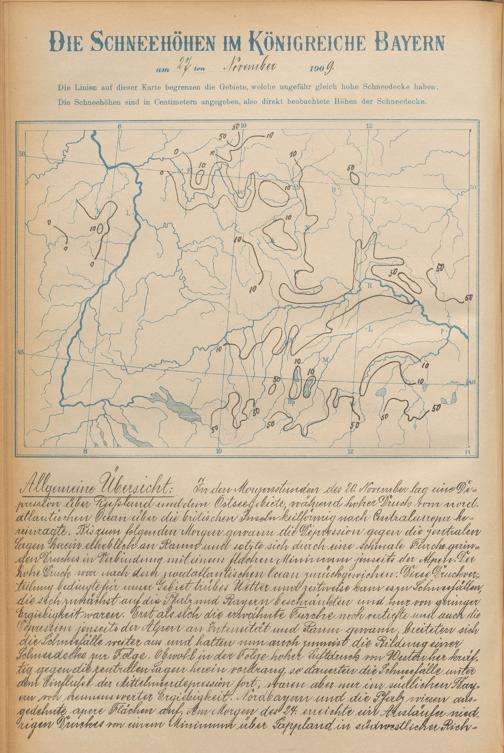 DIE SCHNEEHÖHEN IM KÖNIGREICHE BAYERN
am 27 ten November 1909.
Die Linien auf dieser Karte begrenzen die Gebiete, welche ungefähr gleich hohe Schneedecke haben.
Die Schneehöhen sind in Centimetern angegeben, also direkt beobachtete Höhen der Schneedecke.
Allgemeine Übersicht: In den Morgenstunden des 20. November lag eine De-
pression über Rußland und dem Ostseegebiete, während hoher Druck vom nord-
atlantischen Ocean über die britischen Inseln keilförmig nach Centraleuropa he-
reinragte. Bis zum folgenden Morgen gewann die Depression gegen die zentralen
Lagen herein erheblich an Raum und setzte sich durch eine schmale Furche gerin-
gen Druckes in Verbindung mit einem flachen Minimum jenseits der Alpen. Der
hohe Druck war nach dem nordatlantischen Ocean zurückgewichen. Diese Druckver-
teilung bedingte für unser Gebiet trübes Wetter und zeitweise kam es zu Schneefällen,
die sich zunächst auf die Pfalz und Bayern beschränkten und nur von geringer
Ergiebigkeit waren. Erst als sich die erwähnte Furche noch vertiefte und auch die
Depression jenseits der Alpen an Intensität und Raum gewann, breiteten sich
die Schneefälle weiter aus und hatten nun auch zumeist die Bildung einer
Schneedecke zur Folge. Obwohl in der Folge hoher Luftdruck von Westen her kräf-
tig gegen die zentralen Lagen herein vordrang, so dauerten die Schneefälle unter
dem Einflusse der Mittelmeerdepression fort, waren aber nur im südlichen Bay-
ern von nennenswerter Ergiebigkeit. Nordbayern und die Pfalz wiesen aus-
gedehnte, apere Flächen auf. Am Morgen des 24. erreichte ein Ausläufer nied-
rigen Druckes von einem Minimum über Lappland in südwestlicher Rich-